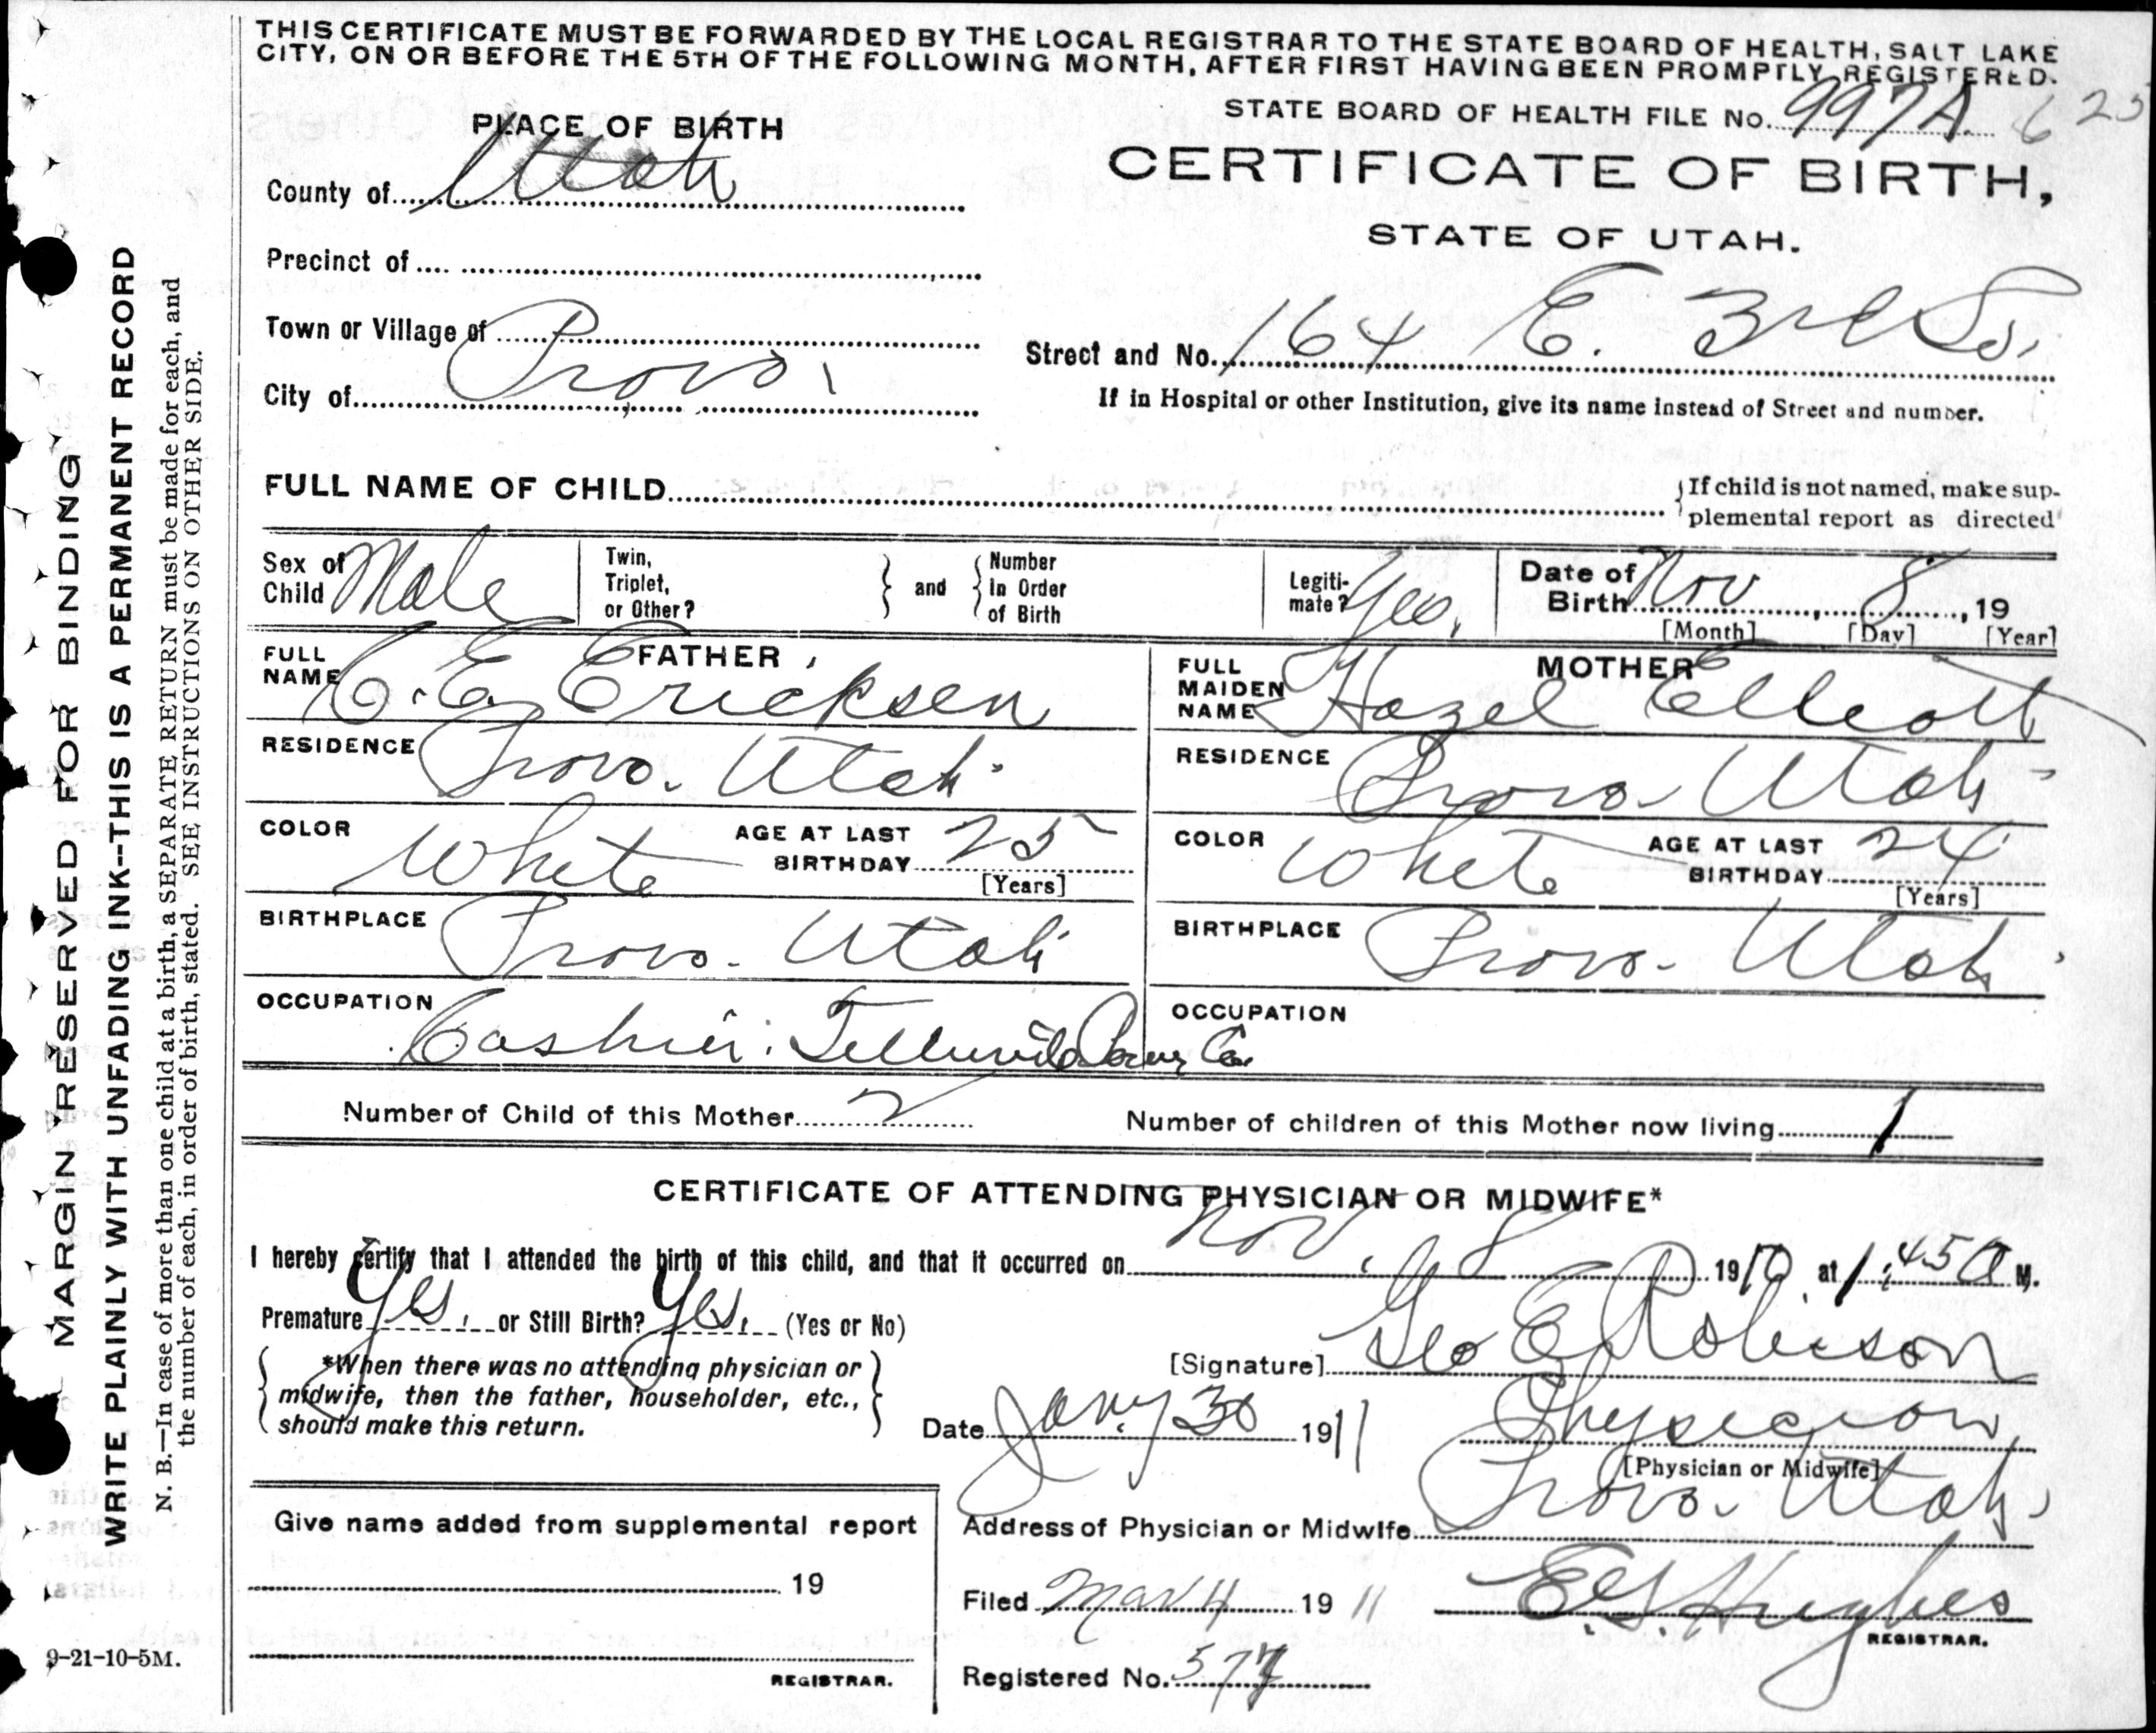 THIS CERTIFICATE MUST BE FORWARDED BY THE LOCAL REGISTRAR TO THE STATE BOARD OF HEALTH, SALT LAKE
CITY, ON OR BEFORE THE 5TH OF THE FOLLOWING MONTH, AFTER FIRST HAVING BEEN PROMPTLY REGISTERED.
STATE BOARD OF HEALTH FILE No. 997A 625
PLACE OF BIRTH
CERTIFICATE OF BIRTH,
STATE OF UTAH.
County of Utah
Precinct of
Town or Village of
Provo.
City of
Street and No. 164 E. 3rd So.
If in Hospital or other Institution, give its name instead of Street and number.
FULL NAME OF CHILD
If child is not named, make sup-
plemental report as directed
Sex of Child Male
Twin, Triplet, or Other?
and
Number in Order of Birth
Legiti-mate? Yes.
Date of Birth Nov 8, 19
[Month] [Day] [Year]
FATHER
FULL NAME C. E. Ericksen
RESIDENCE Provo. Utah.
COLOR White AGE AT LAST BIRTHDAY 25
[Years]
BIRTHPLACE Provo. Utah
OCCUPATION Cashier. Telluride Power Co.
MOTHER
FULL MAIDEN NAME Hazel Elliott
RESIDENCE Provo. Utah
COLOR White AGE AT LAST BIRTHDAY 24
[Years]
BIRTHPLACE Provo. Utah.
OCCUPATION
Number of Child of this Mother 2 Number of children of this Mother now living 1
CERTIFICATE OF ATTENDING PHYSICIAN OR MIDWIFE*
I hereby certify that I attended the birth of this child, and that it occurred on Nov. 8 1910. at 1:45 a M.
Premature Yes. or Still Birth? Yes. (Yes or No)
*When there was no attending physician or
midwife, then the father, householder, etc.,
should make this return.
[Signature] Geo E Robison
Date Jany 30 1911 Physician
[Physician or Midwife]
Address of Physician or Midwife Provo. Utah
Give name added from supplemental report
19
REGISTRAR.
Filed Mar 4 1911 E. G. Hughes
REGISTRAR.
Registered No. 577
9-21-10-5M.
MARGIN RESERVED FOR BINDING
WRITE PLAINLY WITH UNFADING INK--THIS IS A PERMANENT RECORD
N. B.—In case of more than one child at a birth, a SEPARATE RETURN must be made for each, and
the number of each, in order of birth, stated. SEE INSTRUCTIONS ON OTHER SIDE.